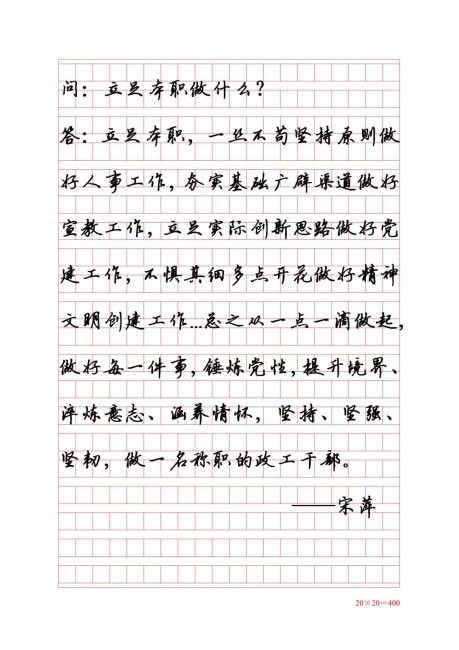 问：立足本职做什么？
答：立足本职，一丝不苟坚持原则做
好人事工作，夯实基础广辟渠道做好
宣教工作，立足实际创新思路做好党
建工作，不惧其细多点开花做好精神
文明创建工作...总之从一点一滴做起，
做好每一件事，锤炼党性，提升境界、
淬炼意志、涵养情怀，坚持、坚强、
坚韧，做一名称职的政工干部。
——宋萍
20×20=400